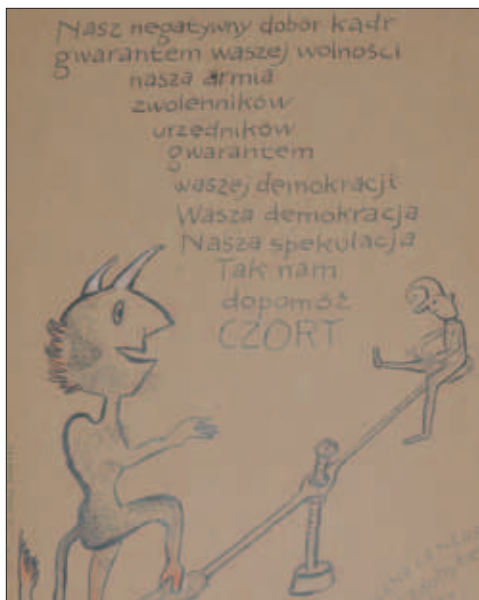 Nasz negatywny dobór kadr
gwarantem waszej wolności
nasza armia
zwolenników
urzędników
gwarantem
waszej demokracji
Wasza demokracja
Nasza spekulacja
Tak nam
dopomóż
CZORT